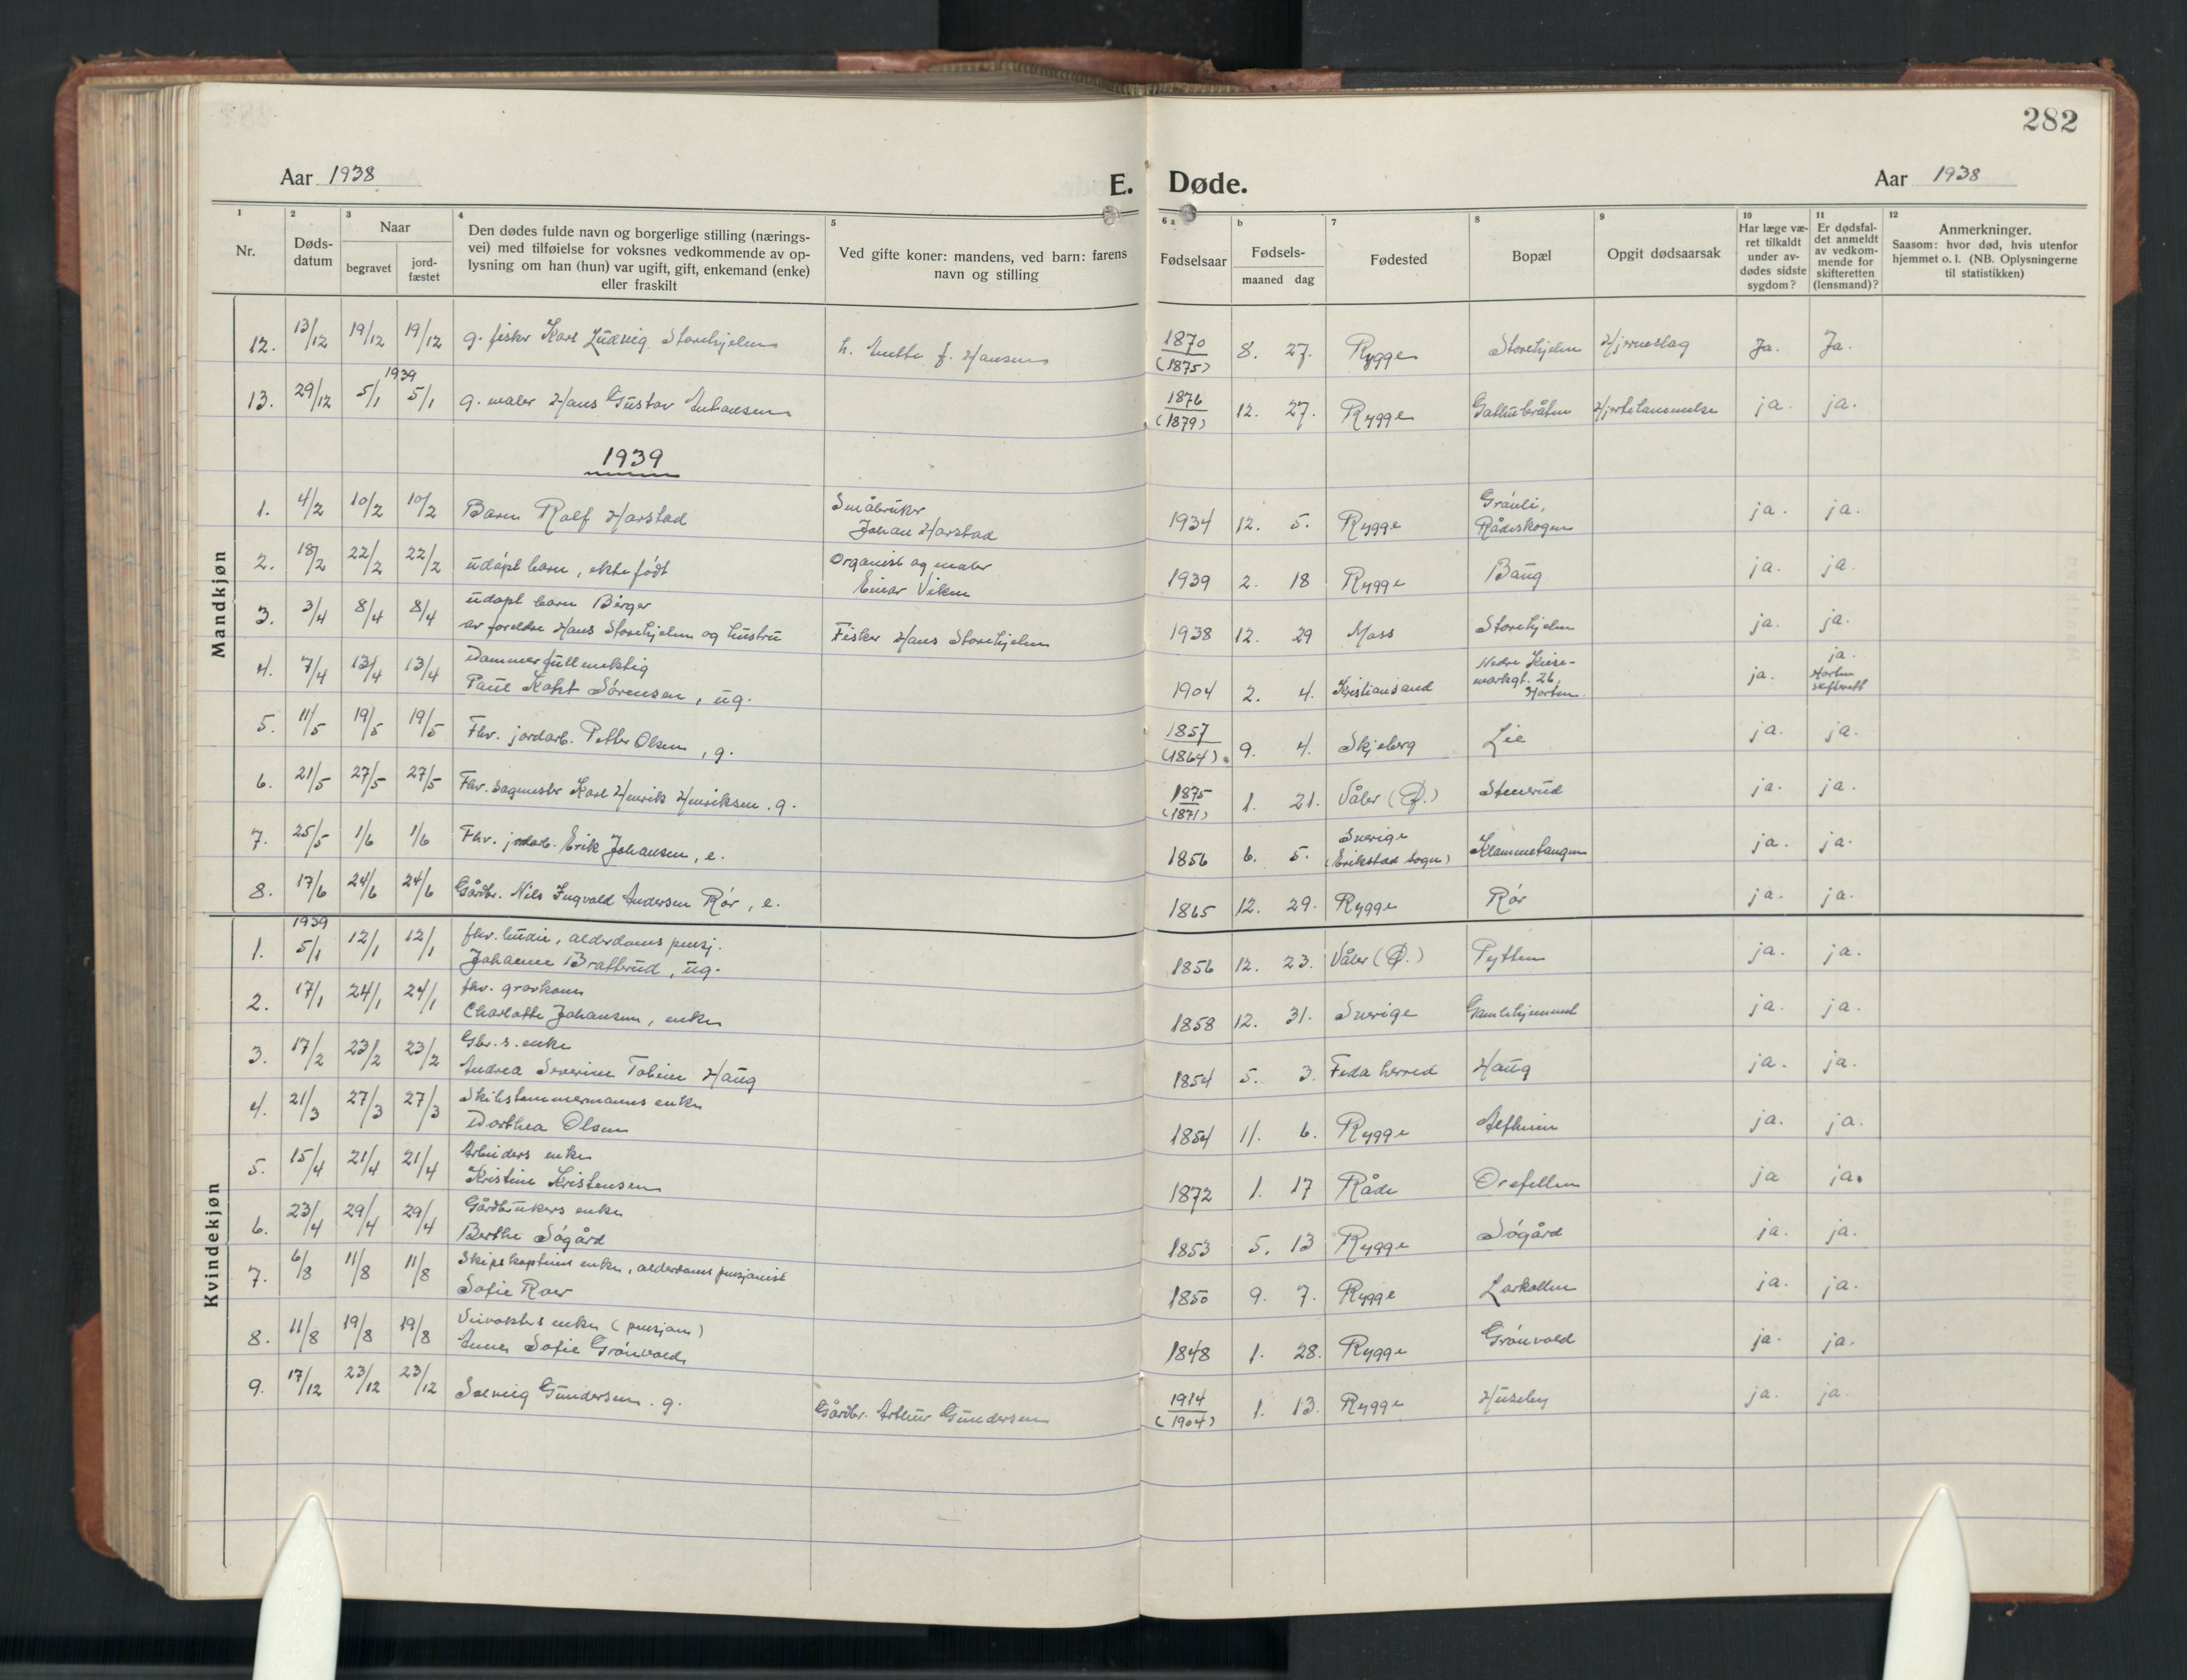 282
Aar 1938 E. Døde. Aar 1938
1 2 3 4 5 6 a b 7 8 9 10 11 12
Nr. Døds-datum Naar begravet jord-fæstet Den dødes fulde navn og borgerlige stilling (nærings-vei) med tilføielse for voksnes vedkommende av op-lysning om han (hun) var ugift, gift, enkemand (enke) eller fraskilt Ved gifte koner: mandens, ved barn: farens navn og stilling Fødselsaar Fødsels- maaned dag Fødested Bopæl Opgit dødsaarsak Har læge væ-ret tilkaldt under av-dødes sidste sygdom? Er dødsfal-det anmeldt av vedkom-mende for skifteretten (lensmand)? Anmerkninger. Saasom: hvor død, hvis utenfor hjemmet o. l. (NB. Oplysningerne til statistikken)
Mandkjøn
12. 13/12 19/12 19/12 g. fisker Karl Ludvig Storehjelm h. f. Hansen 1870 (1875) 8. 27. Rygge Storehjelm Hjerneslag Ja. Ja.
13. 29/12 1939 5/1 5/1 g. maler Hans Gustav Antonsen 1876 (1879) 12. 27. Rygge Hjertelammelse ja. ja.
1939
1. 4/2 10/2 10/2 Barn Rolf Harstad Småbruker Johan Harstad 1934 12. 5. Rygge Grånli, Rådeskogen ja. ja.
2. 18/2 22/2 22/2 udøpt barn, ekte født Organist og maler Einar Viken 1939 2. 18 Rygge Baug ja. ja.
3. 3/4 8/4 8/4 udøpt barn Birger av foreldre Hans Storehjelm og hustru Fisker Hans Storehjelm 1938 12. 29 Moss Storehjelm ja. ja.
4. 7/4 13/4 13/4 Dommerfullmektig Paul Sørensen, ug. 1904 2. 4. Kristiansand Nedre Keise-markgt. 26, Horten. ja. ja. Horten skifterett
5. 11/5 19/5 19/5 Fhv. jordarb. Petter Olsen, g. 1857 (1864) 9. 4. Skjeberg Lie ja. ja.
6. 21/5 27/5 27/5 Fhv. sagmester Karl Henrik Henriksen. g. 1875 (1871) 1. 21. Våler (Ø.) Stenerud ja. ja.
7. 25/5 1/6 1/6 Fhv. jordarb. Erik Johansen, e. 1856 6. 5. Sverige (Erikstad sogn) Klommetangen ja. ja.
8. 17/6 24/6 24/6 Gårdbr. Nils Ingvald Andersen Rør, e. 1865 12. 29. Rygge Rør ja. ja.
Kvindekjøn
1939
1. 5/1 12/1 12/1 fhv. budeie, alderdoms pensj. Johanne Brattrud, ug. 1856 12. 23. Våler (Ø.) Pytten ja. ja.
2. 17/1 24/1 24/1 fhv. gravkone Charlotte Johansen, enke 1858 12. 31. Sverige Gamlehjemmet ja. ja.
3. 17/2 23/2 23/2 Gbr.s. enke Andrea Severine Tobine Haug 1854 5. 3. Feda herred Haug ja. ja.
4. 21/3 27/3 27/3 Skibstømmermanns enke Dorthea Olsen 1854 11. 6. Rygge ja. ja.
5. 15/4 21/4 21/4 Arbeiders enke Kristine Kristensen 1872 1. 17 Råde Orefellen ja ja.
6. 23/4 29/4 29/4 Gårdbrukers enke Berthe Søgård 1853 5. 13 Rygge Søgård ja. ja.
7. 6/8 11/8 11/8 Skipskapteins enke, alderdoms pensjonist Sofie Roer 1850 9. 7. Rygge Larkollen ja. ja.
8. 11/8 19/8 19/8 Veivokters enke (pensjon) Anne Sofie Grönvold 1848 1. 28. Rygge Grönvold ja. ja.
9. 17/12 23/12 23/12 Solveig Gundersen. g. Gårdbr. Arthur Gundersen 1914 (1904) 1. 13. Rygge Huseby ja. ja.